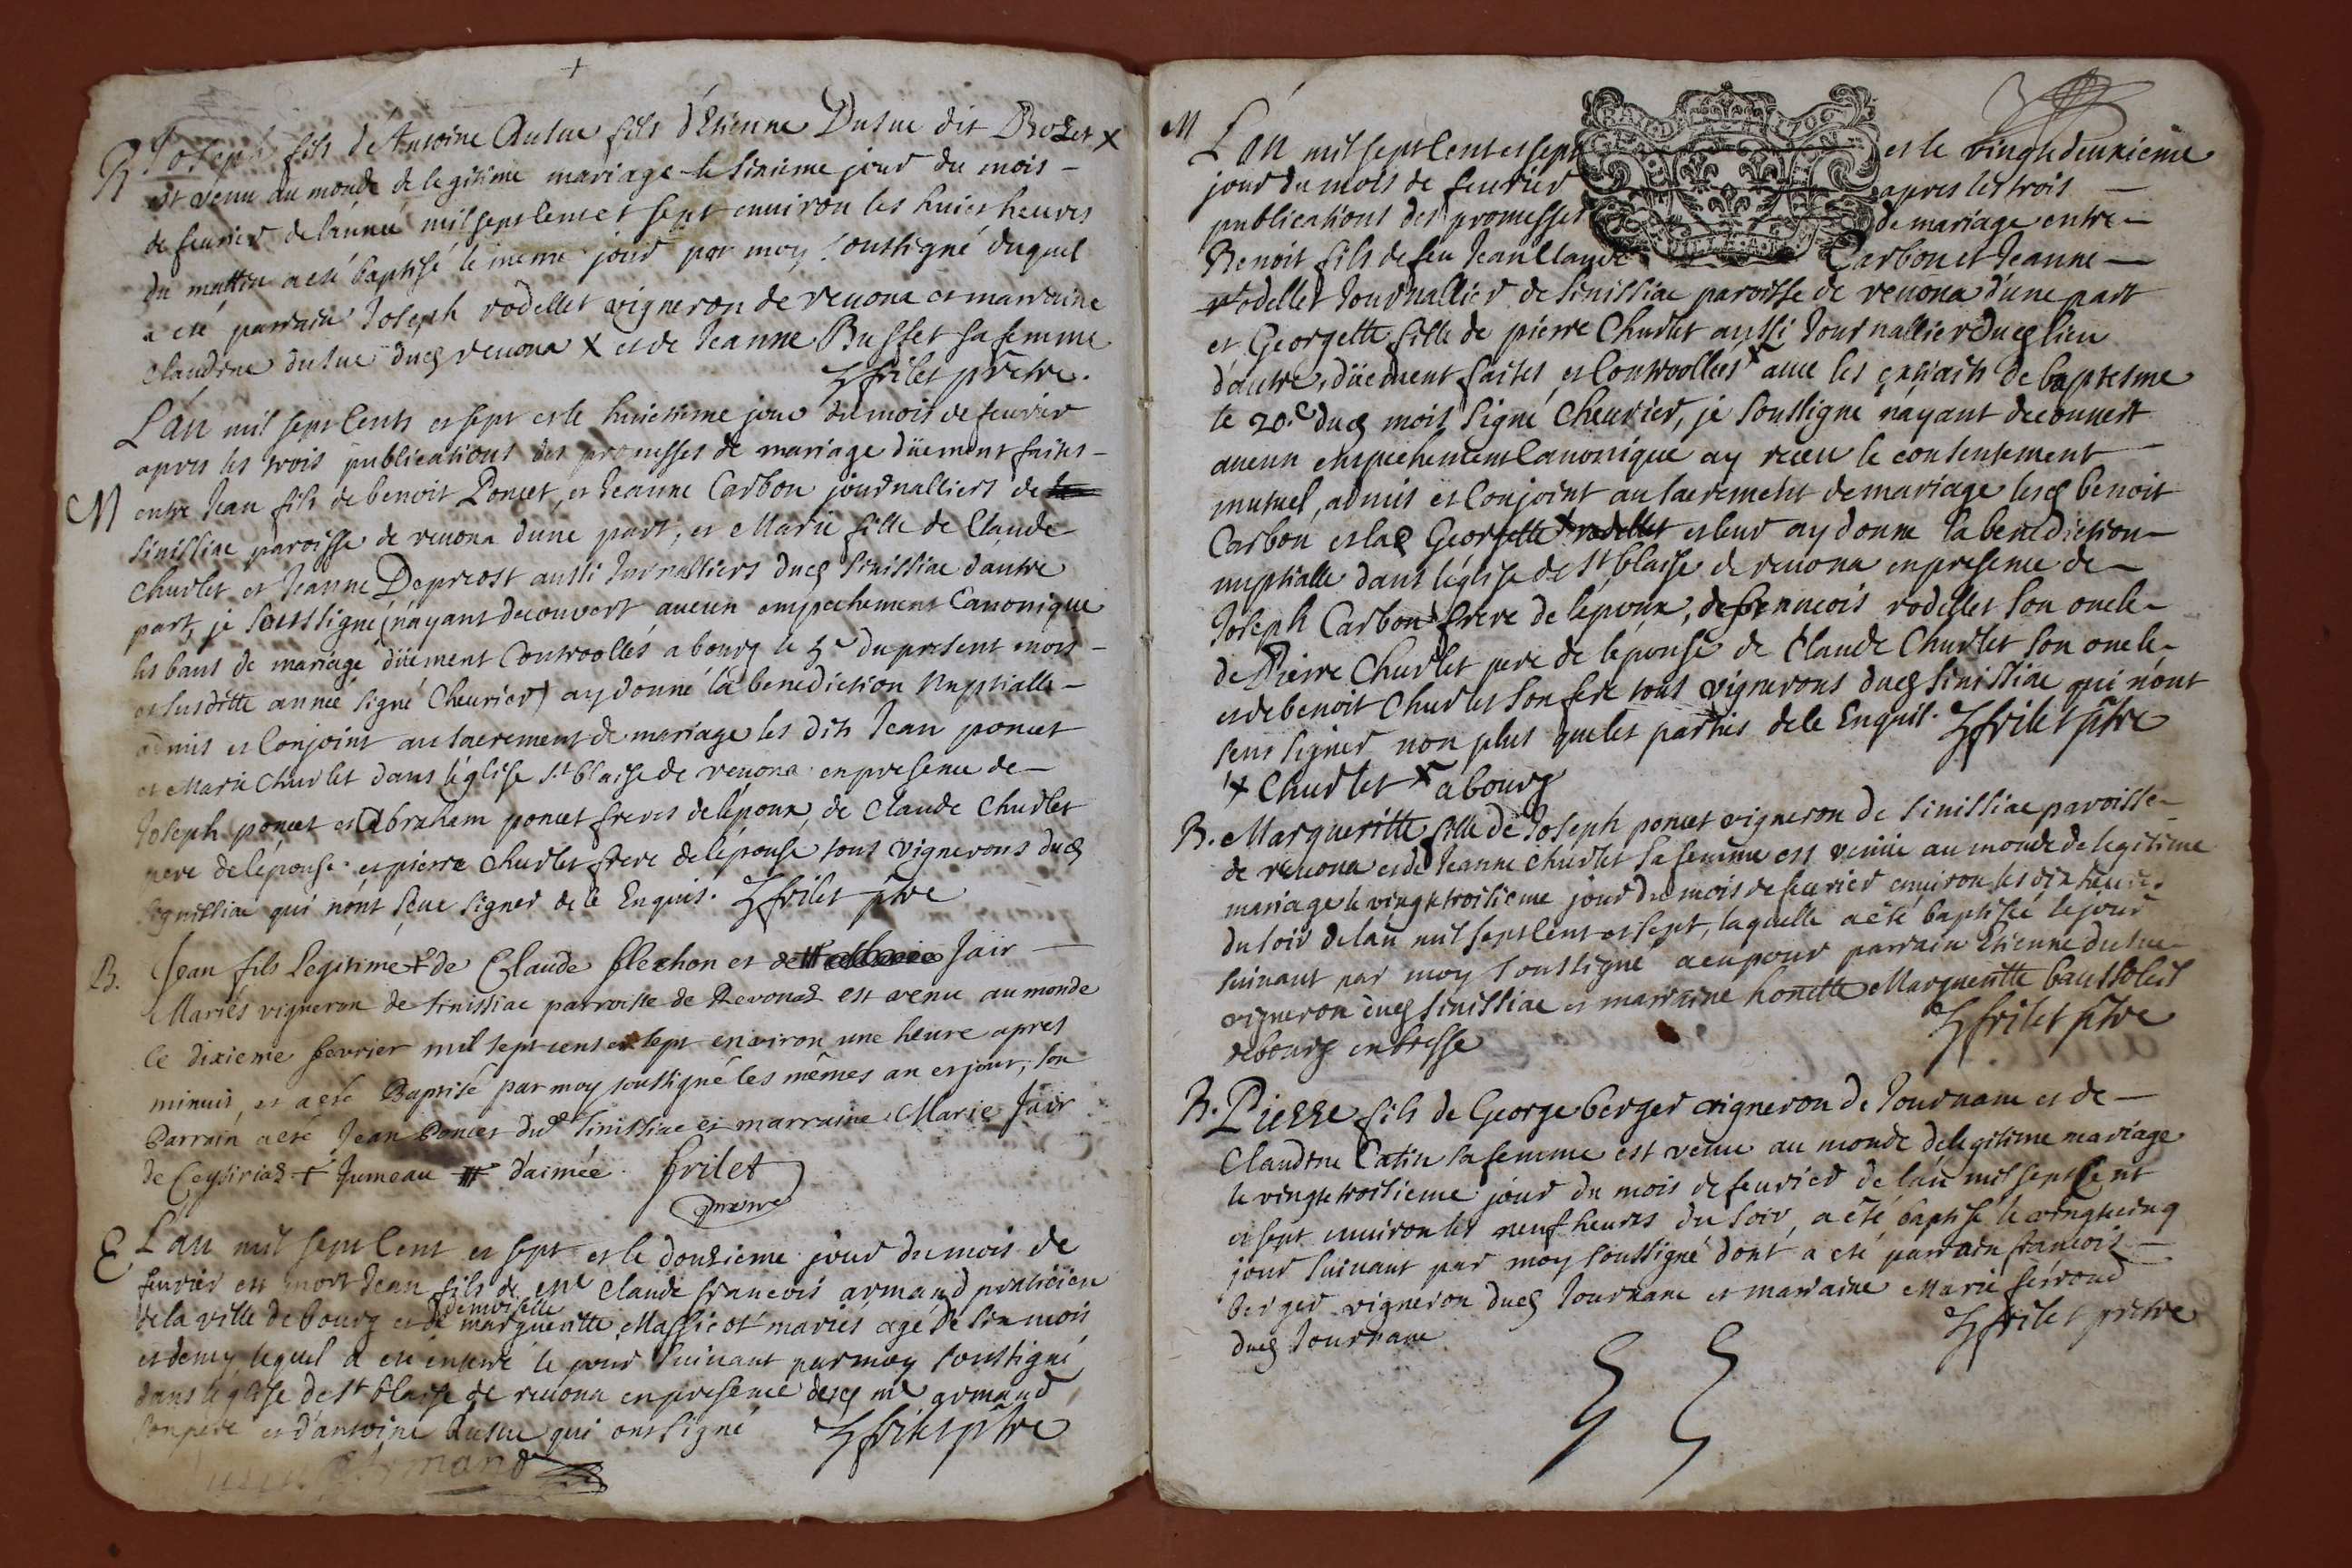 B Joseph fils d'Antoine Dusue fils d'Etienne Dusue dit Brozet x
est venu au monde de legitime mariage le sixieme jour du mois -
de feurier de l'année mil sept cent et sept enuiron les huict heures
du mattin a esté baptisé le meme jour par moy soussigné duquel
a eté parrain Joseph rodellet vigneron de reuona et marraine
Claudine dusue dud reuona x et de Jeanne Busset sa femme
frilet prêtre.
L'an mil sept Cents et sept et le huictieme jour du mois de feurier
apres les trois publications des promesses de mariage düement faites -
M entre Jean fils de benoit Poncet, et Jeanne Carbon journalliers de
sinissiac paroisse de reuona d'une part, et Marie fille de Claude
Churlet et Jeanne Depreost aussi Jornalliers dud Sinissiac d'autre
part, je Soussigné (n'ayant decouvert aucun empechement Canonique
les bans de mariage düement Controollés a bourg le 5e du present mois -
et susditte année signé Cheurier) ay donné la benediction Nuptialle -
admis et Conjoint au sacrement de mariage les dits Jean poncet
et Marie Churlet dans l'église St blaise de reuona en presence de -
Joseph poncet et Abraham poncet freres de l'époux, de Claude Churlet
pere de l'épouse et pierre Churlet frere de l'épouse tous vignerons dud
signissiac qui n'ont sçeu signer de ce Enquis. frilet ptre
B. Jean fils Legitime + de Claude flechon et de # Jair -
Mariés vigneron de sinissiac parroisse de Revonas est venu au monde
le dixieme fevrier mil sept cens et sept environ une heure apres
minuit, et a eté Baptisé par moy soussigné les mêmes an et jour; son
Parrain a eté Jean Poncet dud sinissiac et marraine Marie Jair
de Ceysiriaz + Jumeau # d'aimée. frilet
prêtre
E L'an mil sept Cent et sept et le douzieme jour du mois de
feurier est mort Jean fils de me Claude francois armand praticien
de la ville de bourg et de demoiselle margueritte Massicot mariés agé de six mois
et demy lequel a eté enterré le jour suiuant par moy soussigné
dans l'église de St blaise de reuona en presence dud me armand
son pere et d'antoine dusue qui ont signé frilet ptre
Armand
M L'an mil sept Cent et sept et le vingt deuxieme
jour du mois de feurier apres les trois -
publications des promesses de mariage entre -
Benoit fils de feu Jean Claude Carbon et Jeanne -
rodellet Journallier de sinissiac paroisse de reuona d'une part
et Georgette fille de pierre Churlet aussi Journallier dud lieu
d'autre, düement faites et Controollées x auec les extraits de baptesme
le 20.e dud mois signé Cheurier, je soussigné n'ayant decouuert
aucun empechement Canonique ay receu le consentement -
mutuel, admis et Conjoint au sacrement de mariage lesd benoit
Carbon et lad Georgette x rodellet et leur ay donné la benediction -
nuptialle dans l'église de St blaise de reuona en presence de -
Joseph Carbon frere de l'époux, de francois rodellet son oncle -
de Pierre Churlet pere de l'épouse de Claude Churlet son oncle -
et de benoit Churlet son frere tous vignerons dud sinissiac qui n'ont
sceu signer non plus que les parties de ce Enquis. frilet ptre
x Churlet x a bourg
B. Margueritte fille de Joseph poncet vigneron de sinissiac paroisse -
de reuona et de Jeanne Churlet sa femme est venüe au monde de legitime
mariage le vingt troisieme jour du mois de feurier enuiron les dix heures
du soir de l'an mil sept Cent et sept, laquelle a eté baptisée le jour
suiuant par moy soussigné a eu pour parrain Etienne dusue -
vigneron dud sinissiac et marraine honette Margueritte baussoleil
de bourg en bresse frilet ptre
B. Pierre fils de George berger vigneron de Journans et de -
Claudine Catin sa femme est venu au monde de legitime mariage
le vingt troisieme jour du mois de feurier de l'an mil sept Cent
et sept enuiron les neuf heures du soir, a eté baptisé le vingt cinq
jour suiuant par moy soussigné dont a eté parrain francois -
berger vigneron dud Journans et marraine Marie ferroud
dud Journans frilet prêtre